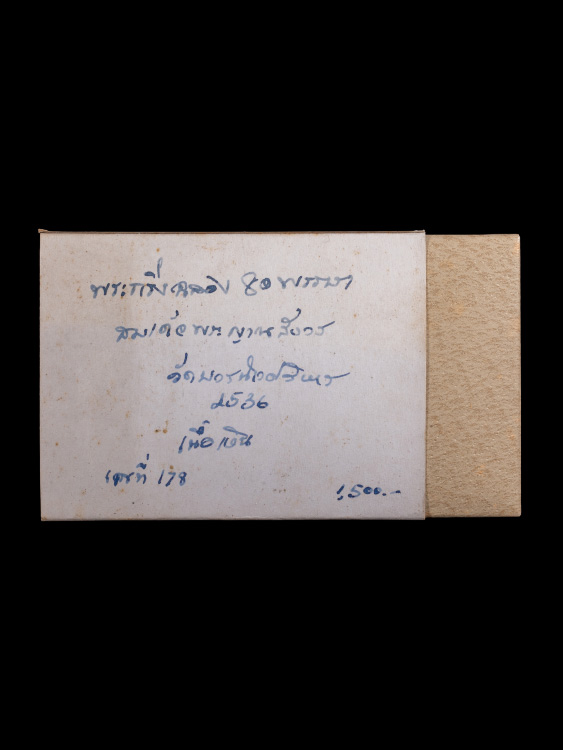 พระกริ่งฉลอง 80 พรรษา
สมเด็จพระญาณสังวร
วัดบวรนิเวศวิหาร
2536
เนื้อเงิน
เลขที่ 178
1,500.-